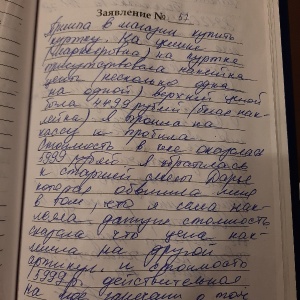 Заявление № 57
Пришла в магазин купить
куртку. На ценнике
(маркировка) на куртке
присутствовала наклейка
цены (несколько одна
на одной) верхней ценой
была 4499 рублей (была нак-
лейка) Я прошла на
кассу и пробила
Стоимость в чеке оказалась
5999 рублей. Я обратилась
к старшей смены Дарье
которая обвинила меня
в том, что я сама нак-
леила данную стоимость
сказала что цена нак-
леена на другой
артикул. и стоимость
5999 р. действительная